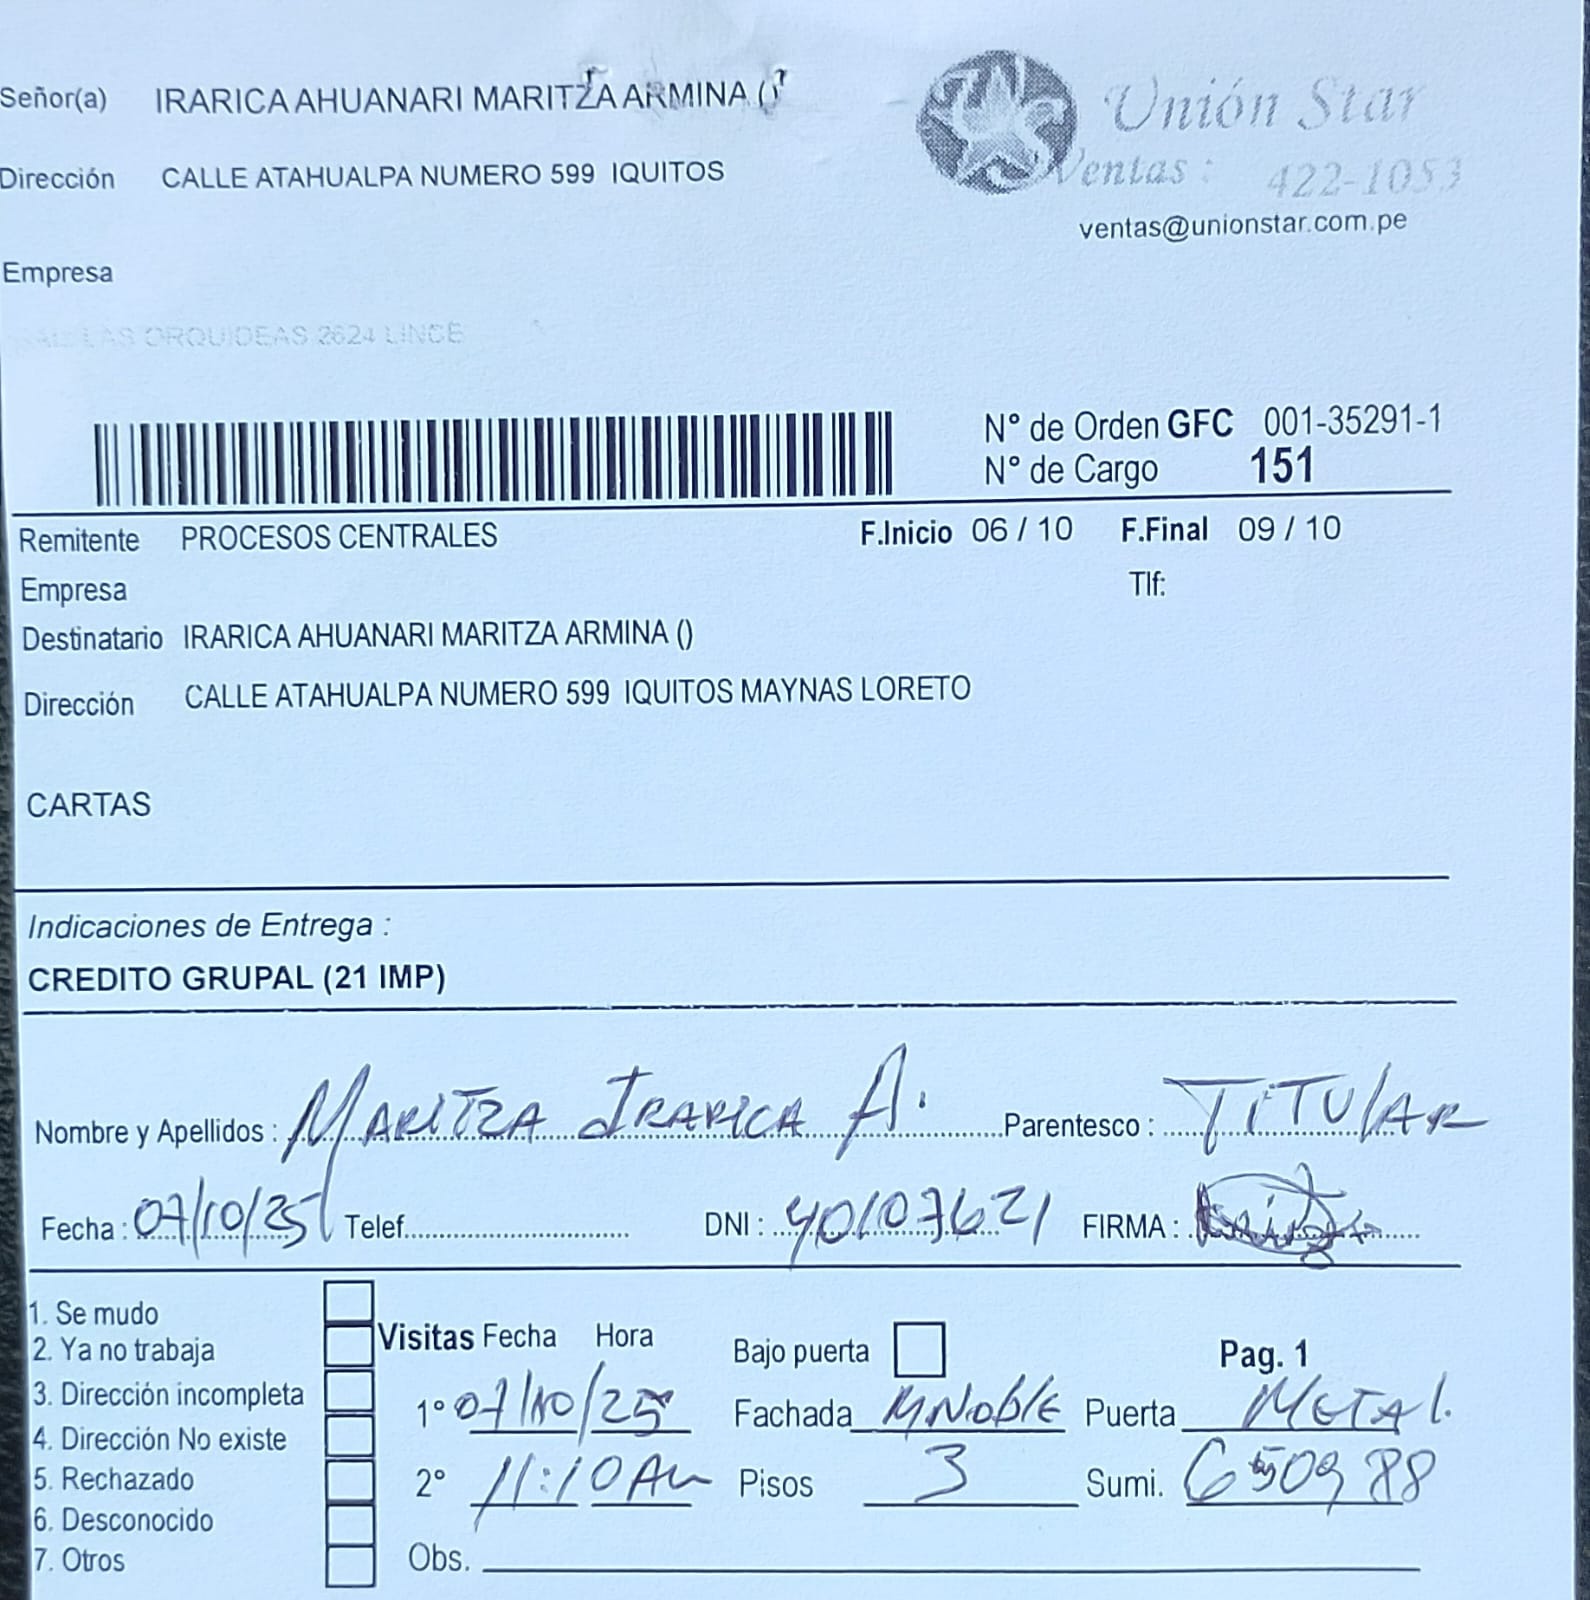 Señor(a) IRARICA AHUANARI MARITZA ARMINA ()
Unión Star
Dirección CALLE ATAHUALPA NUMERO 599 IQUITOS
Ventas : 422-1053
ventas@unionstar.com.pe
Empresa
LAS ORQUIDEAS 2624 LINCE
N° de Orden GFC 001-35291-1
N° de Cargo 151
Remitente PROCESOS CENTRALES F.Inicio 06 / 10 F.Final 09 / 10
Empresa Tlf:
Destinatario IRARICA AHUANARI MARITZA ARMINA ()
Dirección CALLE ATAHUALPA NUMERO 599 IQUITOS MAYNAS LORETO
CARTAS
Indicaciones de Entrega :
CREDITO GRUPAL (21 IMP)
Nombre y Apellidos : MARITZA IRARICA A. Parentesco : TITULAR
Fecha : 07/10/25 Telef. DNI : 40107621 FIRMA :
1. Se mudo
2. Ya no trabaja
3. Dirección incompleta
4. Dirección No existe
5. Rechazado
6. Desconocido
7. Otros
Visitas Fecha Hora Bajo puerta Pag. 1
1° 07/10/25 Fachada MNoble Puerta METAL.
2° 11:10 AM Pisos 3 Sumi. 650988
Obs.